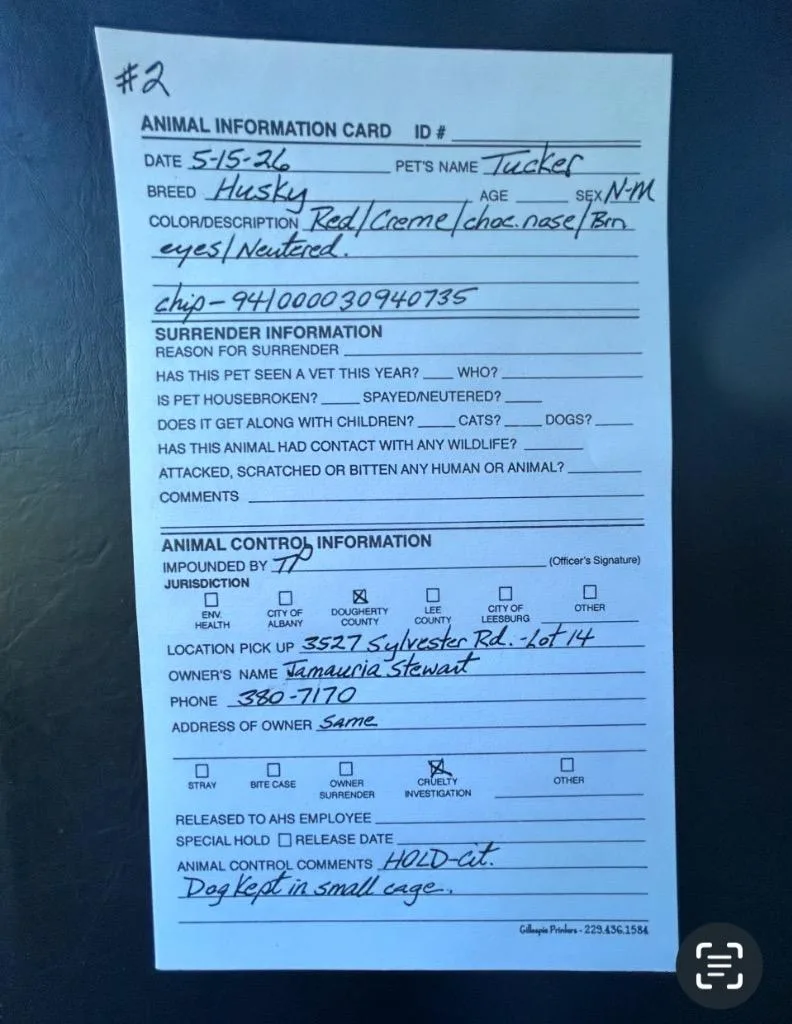 #2
ANIMAL INFORMATION CARD ID #
DATE 5-15-26 PET'S NAME Tucker
BREED Husky AGE SEX N-M
COLOR/DESCRIPTION Red/Creme/choc.nose/Brn
eyes/Neutered.
chip-941000030940735
SURRENDER INFORMATION
REASON FOR SURRENDER
HAS THIS PET SEEN A VET THIS YEAR? WHO?
IS PET HOUSEBROKEN? SPAYED/NEUTERED?
DOES IT GET ALONG WITH CHILDREN? CATS? DOGS?
HAS THIS ANIMAL HAD CONTACT WITH ANY WILDLIFE?
ATTACKED, SCRATCHED OR BITTEN ANY HUMAN OR ANIMAL?
COMMENTS
ANIMAL CONTROL INFORMATION
IMPOUNDED BY TP (Officer's Signature)
JURISDICTION
ENV. HEALTH CITY OF ALBANY DOUGHERTY COUNTY LEE COUNTY CITY OF LEESBURG OTHER
LOCATION PICK UP 3527 Sylvester Rd.-Lot 14
OWNER'S NAME Jamauria Stewart
PHONE 380-7170
ADDRESS OF OWNER Same
STRAY BITE CASE OWNER SURRENDER CRUELTY INVESTIGATION OTHER
RELEASED TO AHS EMPLOYEE
SPECIAL HOLD RELEASE DATE
ANIMAL CONTROL COMMENTS HOLD-Cit.
Dog Kept in small cage.
Gillespie Printers - 229.436.1584